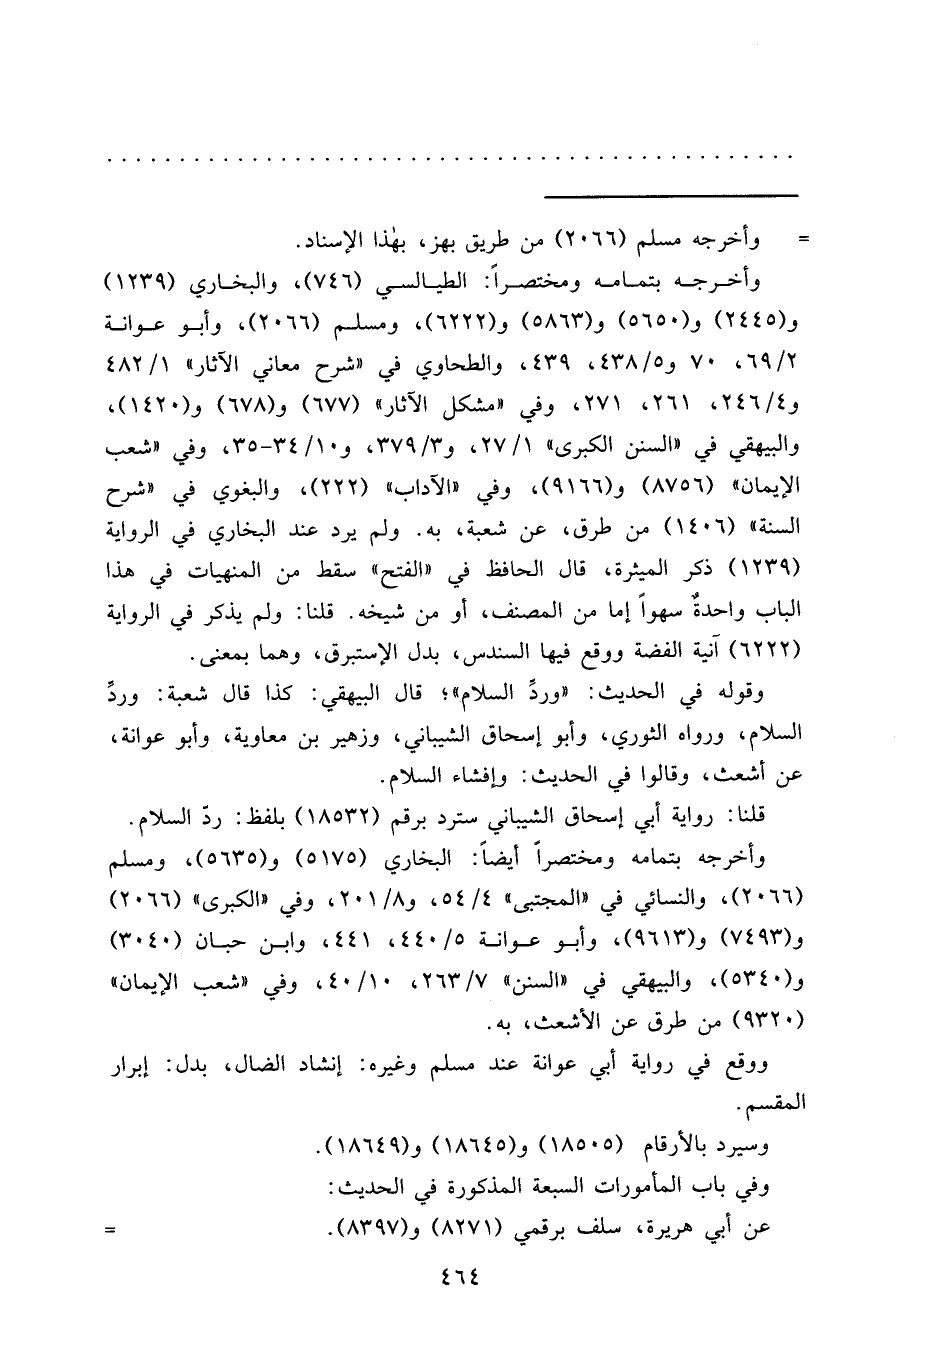 = وأخرجه مسلم (٢٠٦٦) من طريق بهز، بهٰذا الإسناد.
وأخرجه بتمامه ومختصراً: الطيالسي (٧٤٦)، والبخاري (١٢٣٩)
و(٢٤٤٥) و(٥٦٥٠) و(٥٨٦٣) و(٦٢٢٢)، ومسلم (٢٠٦٦)، وأبو عوانة
٦٩/٢، ٧٠ و٤٣٨/٥، ٤٣٩، والطحاوي في «شرح معاني الآثار» ٤٨٢/١
و٢٤٦/٤، ٢٦١، ٢٧١، وفي «مشكل الآثار» (٦٧٧) و(٦٧٨) و(١٤٢٠)،
والبيهقي في «السنن الكبرى» ٢٧/١، و٣٧٩/٣، و٣٤/١٠-٣٥، وفي «شعب
الإيمان» (٨٧٥٦) و(٩١٦٦)، وفي «الآداب» (٢٢٢)، والبغوي في «شرح
السنة» (١٤٠٦) من طرق، عن شعبة، به. ولم يرد عند البخاري في الرواية
(١٢٣٩) ذكر الميثرة، قال الحافظ في «الفتح» سقط من المنهيات في هذا
الباب واحدةٌ سهواً إما من المصنف، أو من شيخه. قلنا: ولم يذكر في الرواية
(٦٢٢٢) آنية الفضة ووقع فيها السندس، بدل الإستبرق، وهما بمعنى.
وقوله في الحديث: «وردِّ السلام»؛ قال البيهقي: كذا قال شعبة: وردِّ
السلام، ورواه الثوري، وأبو إسحاق الشيباني، وزهير بن معاوية، وأبو عوانة،
عن أشعث، وقالوا في الحديث: وإفشاء السلام.
قلنا: رواية أبي إسحاق الشيباني سترد برقم (١٨٥٣٢) بلفظ: ردّ السلام.
وأخرجه بتمامه ومختصراً أيضاً: البخاري (٥١٧٥) و(٥٦٣٥)، ومسلم
(٢٠٦٦)، والنسائي في «المجتبى» ٥٤/٤، و٢٠١/٨، وفي «الكبرى» (٢٠٦٦)
و(٧٤٩٣) و(٩٦١٣)، وأبو عوانة ٤٤٠/٥، ٤٤١، وابن حبان (٣٠٤٠)
و(٥٣٤٠)، والبيهقي في «السنن» ٢٦٣/٧، ٤٠/١٠، وفي «شعب الإيمان»
(٩٣٢٠) من طرق عن الأشعث، به.
ووقع في رواية أبي عوانة عند مسلم وغيره: إنشاد الضال، بدل: إبرار
المقسم.
وسيرد بالأرقام (١٨٥٠٥) و(١٨٦٤٥) و(١٨٦٤٩).
وفي باب المأمورات السبعة المذكورة في الحديث:
عن أبي هريرة، سلف برقمي (٨٢٧١) و(٨٣٩٧). =
٤٦٤